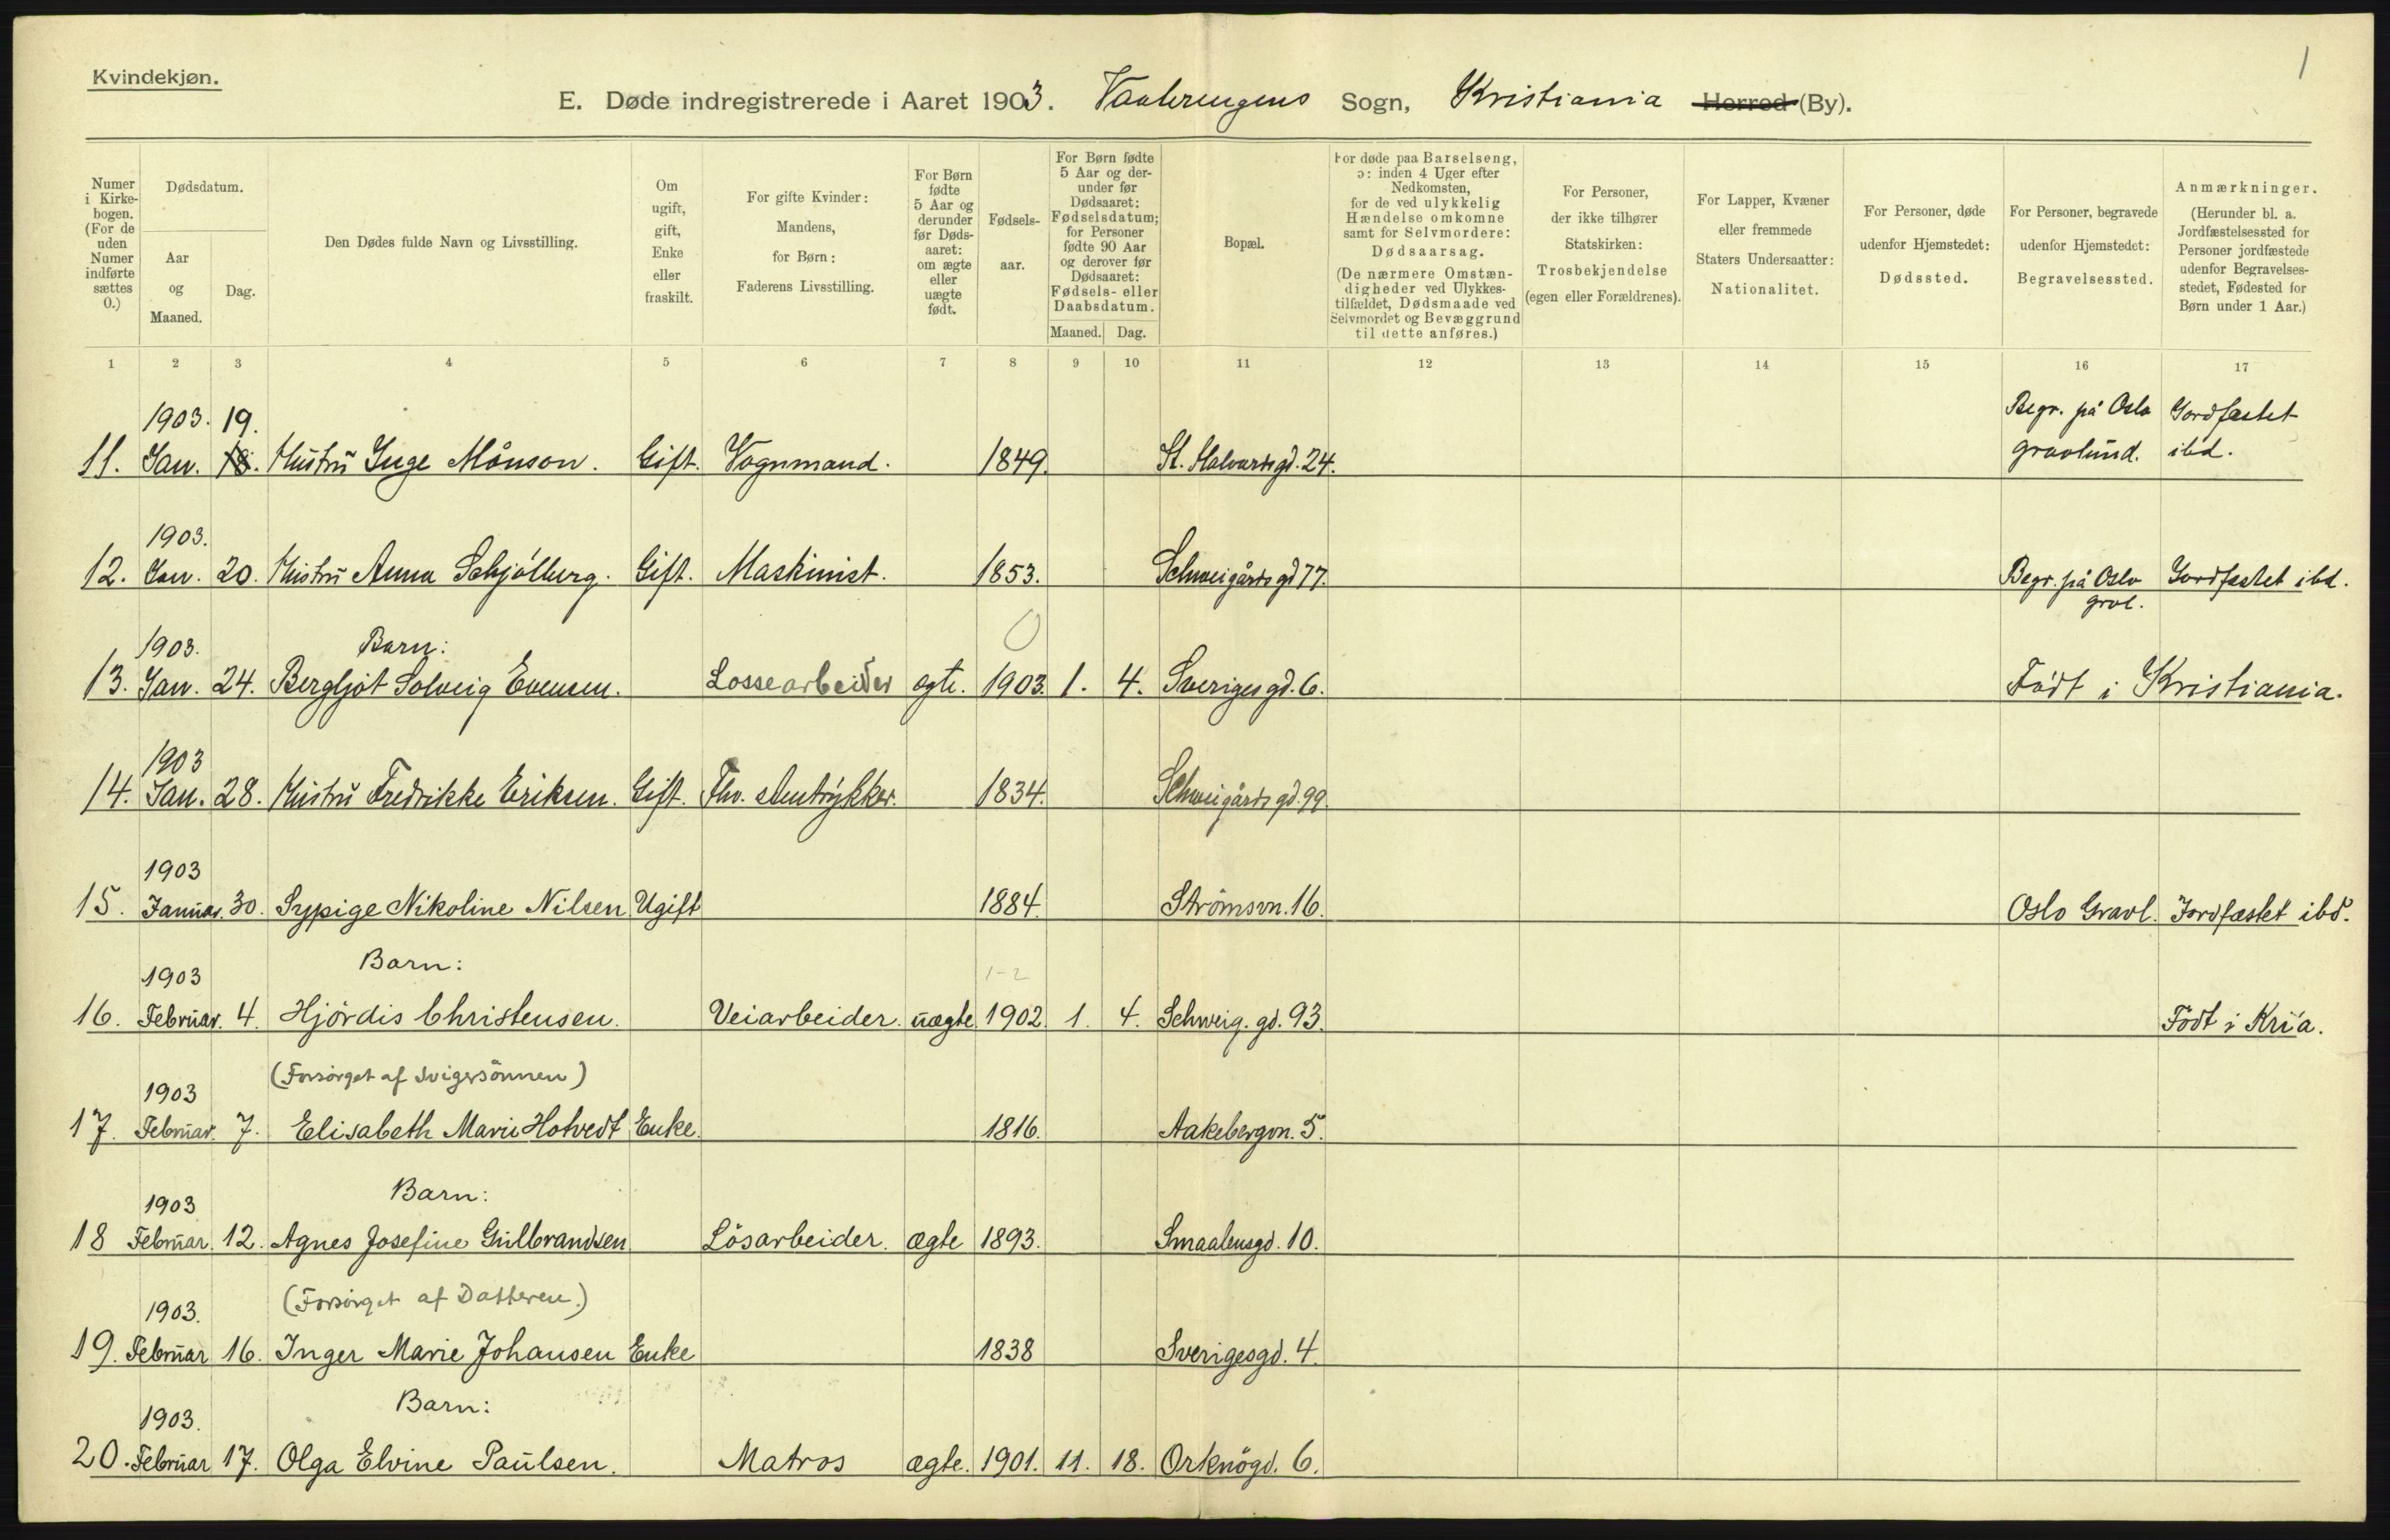 Kvindekjøn.
1
E. Døde indregistrerede i Aaret 1903. Vaalerengens Sogn, Kristiania Herred (By).
Numer i Kirke-bogen. (For de uden Numer indførte sættes 0.)
Dødsdatum.
Aar og Maaned.
Dag.
Den Dødes fulde Navn og Livsstilling.
Om ugift, gift, Enke eller fraskilt.
For gifte Kvinder: Mandens, for Børn: Faderens Livsstilling.
For Børn fødte 5 Aar og derunder før Døds-aaret: om ægte eller uægte født.
Fødsels-aar.
For Børn fødte 5 Aar og der-under før Dødsaaret: Fødselsdatum; for Personer fødte 90 Aar og derover før Dødsaaret: Fødsels- eller Daabsdatum.
Maaned. Dag.
Bopæl.
For døde paa Barselseng, ɔ: inden 4 Uger efter Nedkomsten, for de ved ulykkelig Hændelse omkomne samt for Selvmordere: Dødsaarsag. (De nærmere Omstæn-digheder ved Ulykkes-tilfældet, Dødsmaade ved Selvmordet og Bevæggrund til dette anføres.)
For Personer, der ikke tilhører Statskirken: Trosbekjendelse (egen eller Forældrenes).
For Lapper, Kvæner eller fremmede Staters Undersaatter: Nationalitet.
For Personer, døde udenfor Hjemstedet: Dødssted.
For Personer, begravede udenfor Hjemstedet: Begravelsessted.
Anmærkninger. (Herunder bl. a. Jordfæstelsessted for Personer jordfæstede udenfor Begravelses-stedet, Fødested for Børn under 1 Aar.)
1 2 3 4 5 6 7 8 9 10 11 12 13 14 15 16 17
1903. 19. Begr. på Oslo Jordfæstet
11. Jan. 18. Hustru Inge Månson. Gift. Vognmand. 1849. St. Halvardsgd. 24. gravlund. ibd.
1903.
12. Jan. 20. Hustru Anna Schjölberg. Gift. Maskinist. 1853. Schweigårdsgd 77. Begr. på Oslo Jordfæstet ibd.
gravl.
1903. Barn:
13. Jan. 24. Bergljot Solveig Evensen. Lossearbeider ægte. 1903. 1. 4. Sverigesgd. 6. Födt i Kristiania.
1903
14. Jan. 28. Hustru Fredrikke Eriksen. Gift. Fhv. stentrykker. 1834. Schweigårdsgd. 99.
1903
15. Januar. 30. Sypige Nikoline Nilsen Ugift 1884. Strömsvn. 16. Oslo Gravl. Jordfæstet ibd.
1903 Barn: 1-2
16. Februar. 4. Hjördis Christensen. Veiarbeider. uægte 1902. 1. 4. Schweig. gd. 93. Födt i Kr'a.
1903 (Forsörget af Svigersönnen)
17. Februar. 7. Elisabeth Marie Hotvedt Enke. 1816. Aakebergvn. 5.
1903 Barn:
18 Februar. 12. Agnes Josefine Gulbrandsen Lösarbeider. ægte 1893. Smaalensgd. 10.
1903. (Forsörget af Datteren.)
19. Februar 16. Inger Marie Johansen Enke 1838 Sverigesgd. 4.
1903. Barn:
20. Februar 17. Olga Elvine Paulsen. Matros ægte. 1901. 11. 18. Orknögd. 6.